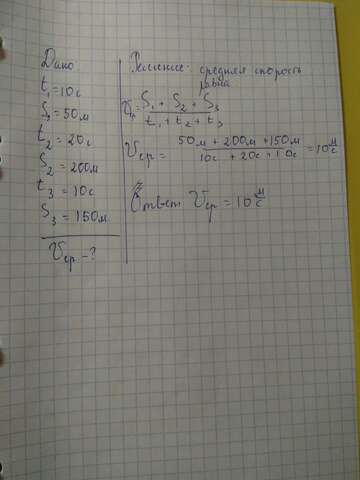 Дано
t₁=10с
S₁=50м
t₂=20с
S₂=200м
t₃=10с
S₃=150м
Vср-?
Решение: средняя скорость
равна
Vср=S₁+S₂+S₃/t₁+t₂+t₃
Vср=50м+200м+150м/10с+20с+10с=10м/с
Ответ Vср=10м/с